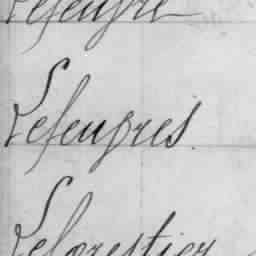 Lefeuvre
Lefeuvres.
Leforestier